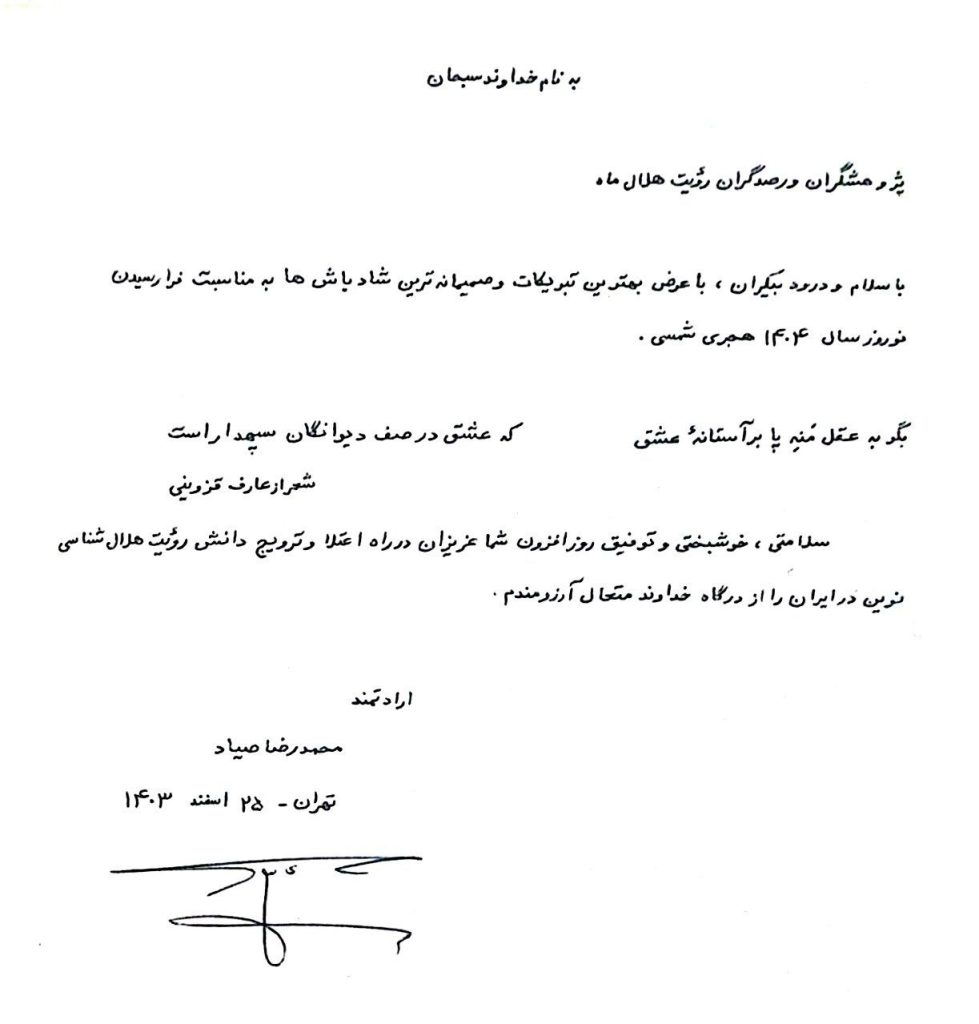 به نام خداوند سبحان
پژوهشگران و رصدگران رؤیت هلال ماه
با سلام و درود بیکران ، با عرض بهترین تبریکات و صمیمانه ترین شادباش ها به مناسبت فرا رسیدن
نوروز سال ۱۴۰۴ هجری شمسی .
بگو به عقل مَنِه پا بر آستانهٔ عشق که عشق در صف دیوانگان سپهدار است
شعر از عارف قزوینی
سلامتی ، خوشبختی و توفیق روز افزون شما عزیزان در راه اعتلا و ترویج دانش رؤیت هلال شناسی
نوین در ایران را از درگاه خداوند متعال آرزومندم .
ارادتمند
محمدرضا صیاد
تهران - ۲۵ اسفند ۱۴۰۳